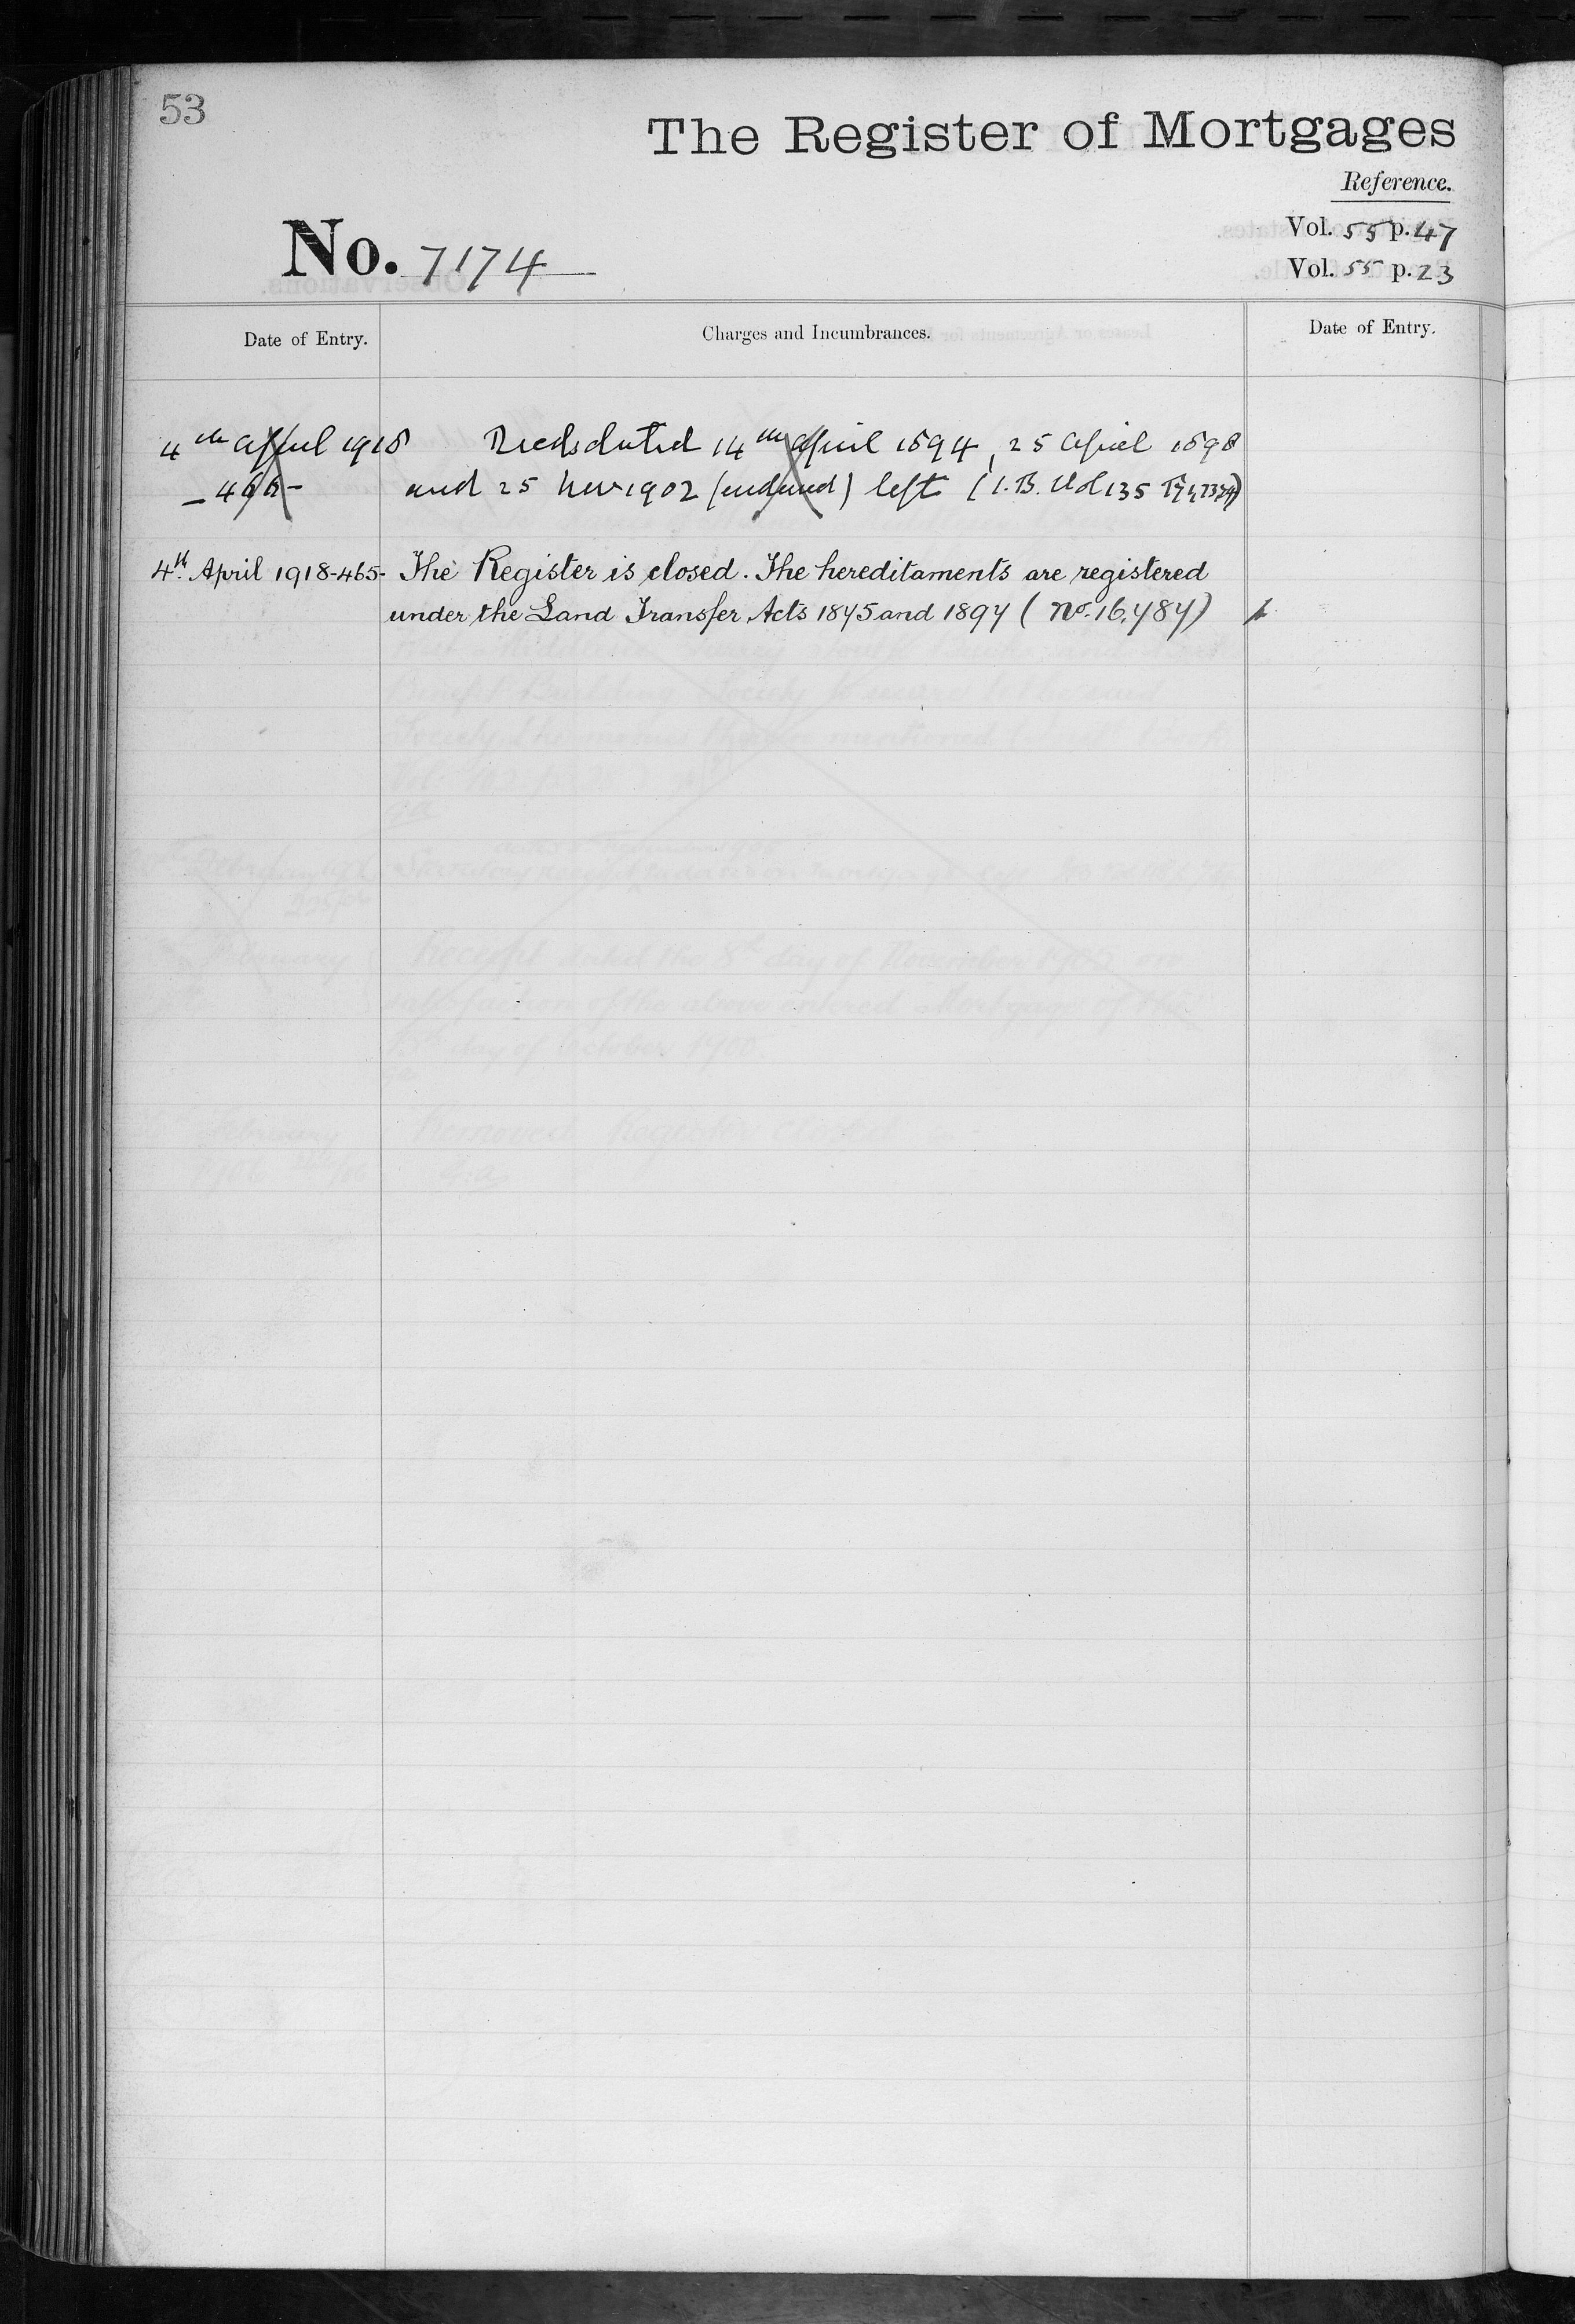 53
The Register of Mortgages
Reference.
Vol. 55 p. 47
No. 7174
Vol. 55 p. 23
Date of Entry.
Charges and Incumbrances.
Date of Entry.
4th April 1918 Deeds dated 14th April 1894, 25 April 1898
and 25 Nov 1902 left (I.B. Vol 135
4th. April 1918-465- The Register is closed. The hereditaments are registered
under the Land Transfer Acts 1875 and 1897 (No. 16,787)